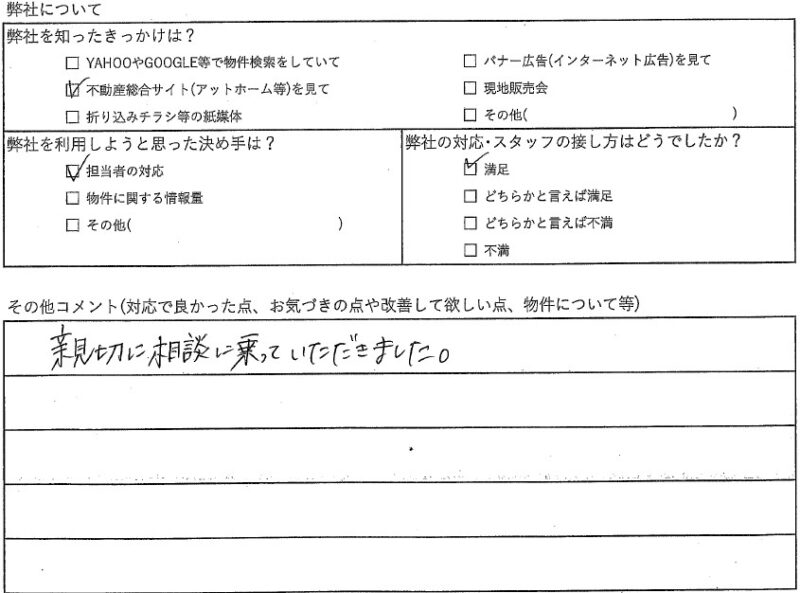 弊社について
弊社を知ったきっかけは？
☐ YAHOOやGOOGLE等で物件検索をしていて
☐ バナー広告(インターネット広告)を見て
☑ 不動産総合サイト(アットホーム等)を見て
☐ 現地販売会
☐ 折り込みチラシ等の紙媒体
☐ その他( )
弊社を利用しようと思った決め手は？
☑ 担当者の対応
☐ 物件に関する情報量
☐ その他( )
弊社の対応・スタッフの接し方はどうでしたか？
☑ 満足
☐ どちらかと言えば満足
☐ どちらかと言えば不満
☐ 不満
その他コメント(対応で良かった点、お気づきの点や改善して欲しい点、物件について等)
親切に相談に乗っていただきました。